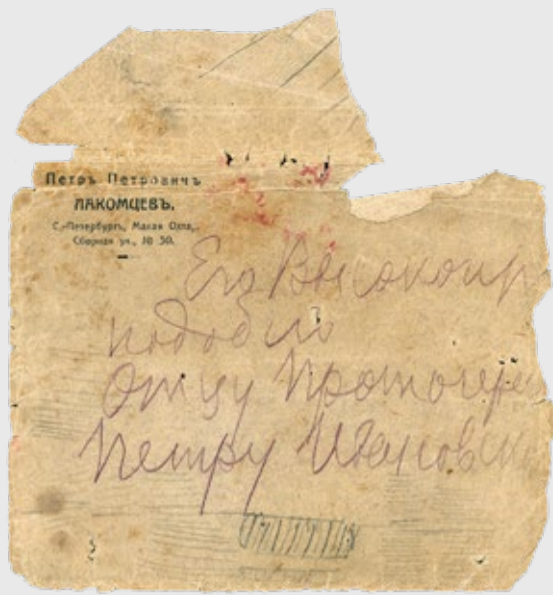 Петръ Петровичъ
ЛАКОМЦЕВЪ.
С.-Петербургъ, Малая Охта,
Сборная ул., № 50.
Его Высокопр
подобію
Отцу Протоіере
Петру Ивановичу